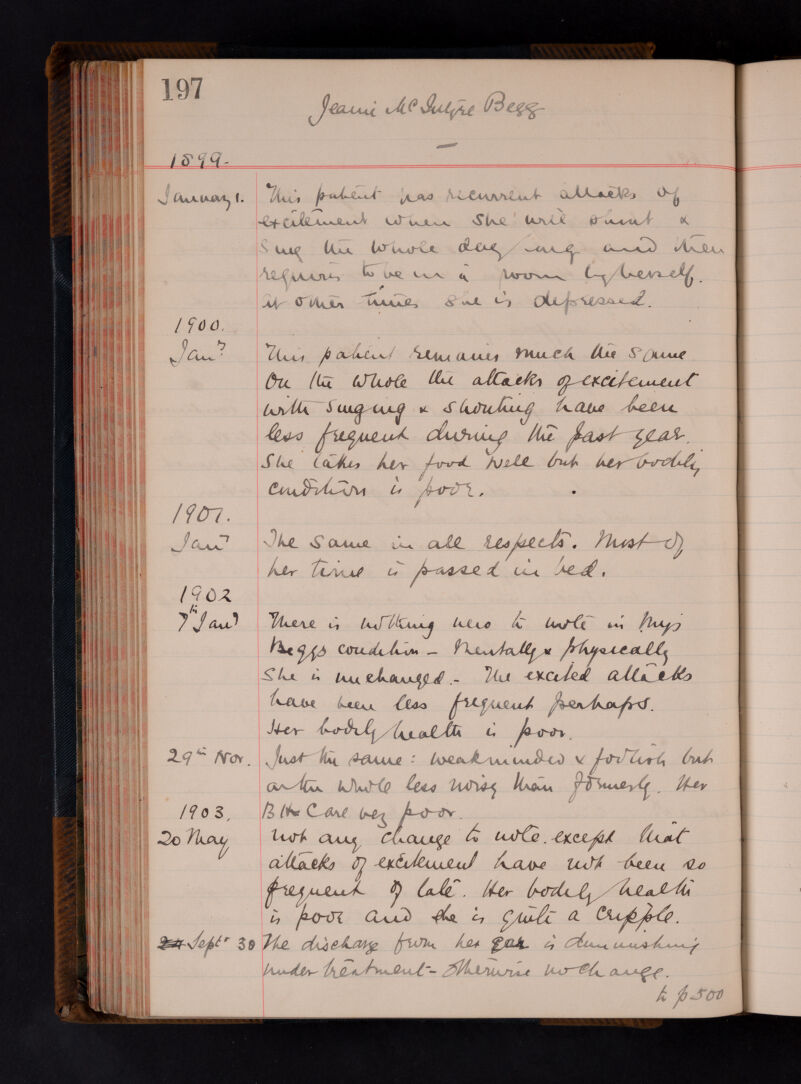 197
Jeanie McIntyre Begg
1899.
January 1. This patient has recurrent attacks of
excitement when she will shout &
sing the whole day long and then
requires to be in a room by herself.
At other times she is depressed.
1900.
Jany This patient remains much the same
On the whole the attacks of excitement
with singing & shouting have been
less frequent during the past year.
She takes her food well but her bodily
condition is poor.
1901.
Jany The same in all respects. Most of
her time is passed in bed.
1902
7th Jany There is nothing new to note in Miss
Beggs condition - Mentally & physically
she is unchanged. - The excited attacks
have been less frequent perhaps.
Her bodily health is poor.
29th Nov. Just the same: weakminded & foolish but
on the whole less noisy than formerly. Her
1903. B H are very poor.
20 May Not any change to note except that
attacks of excitement have not been so
frequent of late. Her bodily health
is poor and she is quite a cripple.
Septr 30 The discharge from her ear is diminishing
under treatment - Otherwise no change.
to p 500